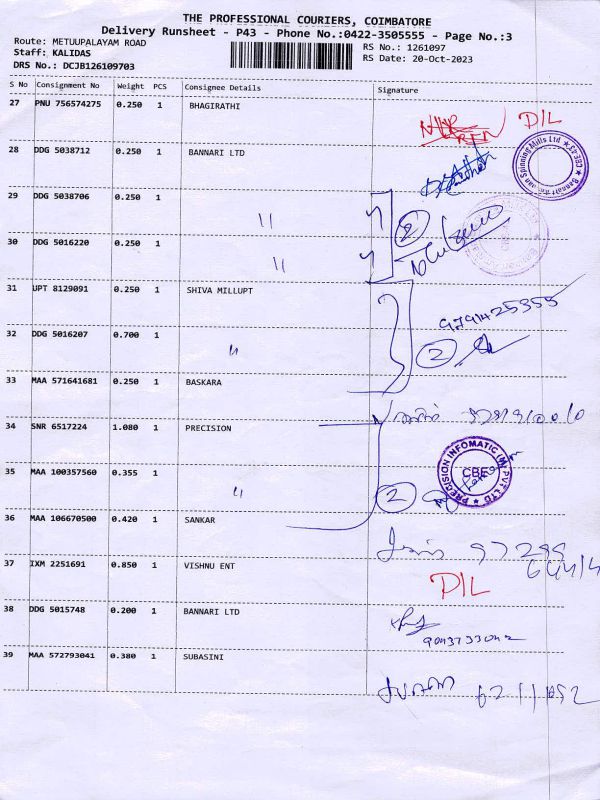 THE PROFESSIONAL COURIERS, COIMBATORE
Delivery Runsheet - P43 - Phone No.:0422-3505555 - Page No.:3
Route: METUUPALAYAM ROAD
RS No.: 1261097
Staff: KALIDAS
RS Date: 20-Oct-2023
DRS No.: DCJB126109703
S No Consignment No Weight PCS Consignee Details Signature
27 PNU 756574275 0.250 1 BHAGIRATHI
D/L
28 DDG 5038712 0.250 1 BANNARI LTD
29 DDG 5038706 0.250 1 "
2
30 DDG 5016220 0.250 1 "
31 UPT 8129091 0.250 1 SHIVA MILLUPT
9791425355
32 DDG 5016207 0.700 1 "
2
33 MAA 571641681 0.250 1 BASKARA
34 SNR 6517224 1.080 1 PRECISION
PRECISION INFOMATIC (M) PVT LTD
CBE
35 MAA 100357560 0.355 1 "
2
36 MAA 106670500 0.420 1 SANKAR
37 IXM 2251691 0.850 1 VISHNU ENT
D/L
38 DDG 5015748 0.200 1 BANNARI LTD
39 MAA 572793041 0.380 1 SUBASINI